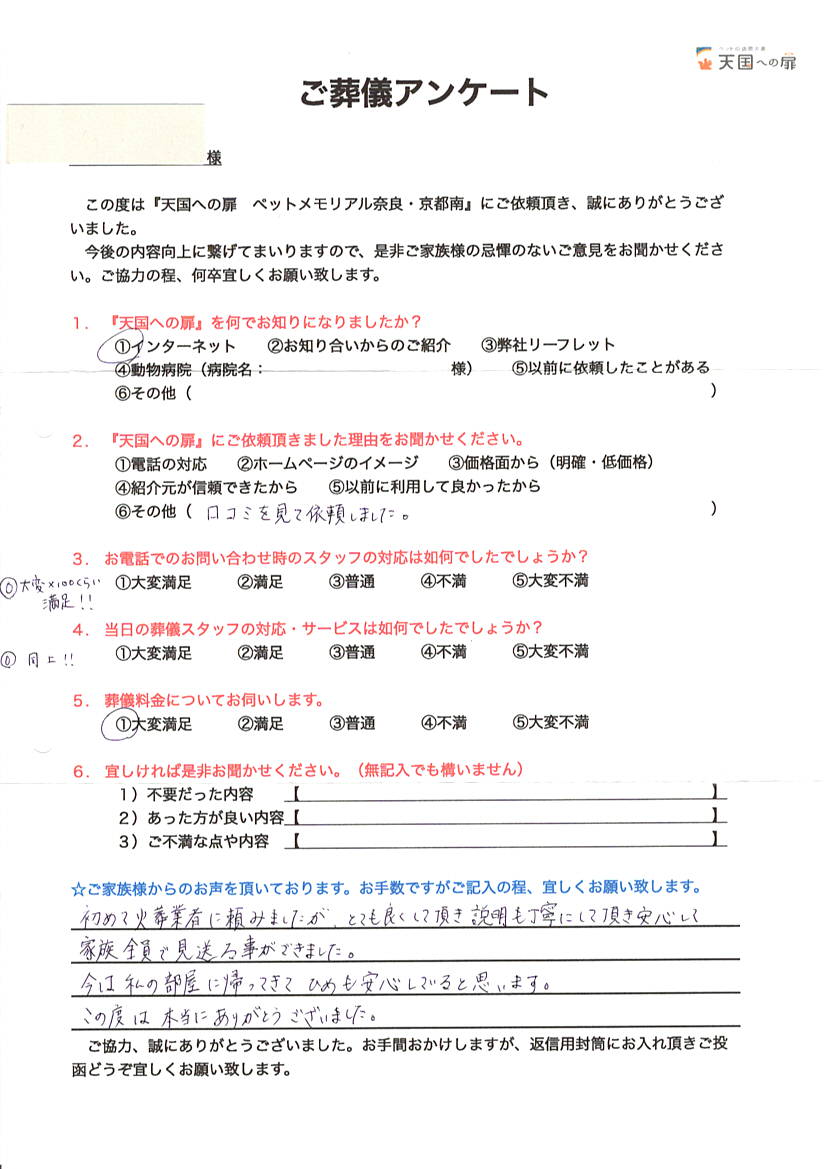 天国への扉
ご葬儀アンケート
様
この度は『天国への扉　ペットメモリアル奈良・京都南』にご依頼頂き、誠にありがとうござ
いました。
今後の内容向上に繋げてまいりますので、是非ご家族様の忌憚のないご意見をお聞かせくださ
い。ご協力の程、何卒宜しくお願い致します。
１．『天国への扉』を何でお知りになりましたか？
①インターネット　②お知り合いからのご紹介　③弊社リーフレット
④動物病院（病院名：　様）　⑤以前に依頼したことがある
⑥その他（　）
２．『天国への扉』にご依頼頂きました理由をお聞かせください。
①電話の対応　②ホームページのイメージ　③価格面から（明確・低価格）
④紹介元が信頼できたから　⑤以前に利用して良かったから
⑥その他（ 口コミを見て依頼しました。 ）
３．お電話でのお問い合わせ時のスタッフの対応は如何でしたでしょうか？
①大変満足　②満足　③普通　④不満　⑤大変不満
⓪大変×100くらい
満足!!
４．当日の葬儀スタッフの対応・サービスは如何でしたでしょうか？
①大変満足　②満足　③普通　④不満　⑤大変不満
⓪ 同上!!
５．葬儀料金についてお伺いします。
①大変満足　②満足　③普通　④不満　⑤大変不満
６．宜しければ是非お聞かせください。（無記入でも構いません）
１）不要だった内容　【　】
２）あった方が良い内容【　】
３）ご不満な点や内容　【　】
☆ご家族様からのお声を頂いております。お手数ですがご記入の程、宜しくお願い致します。
初めて火葬業者に頼みましたが、とても良くして頂き説明も丁寧にして頂き安心して
家族全員で見送る事ができました。
今は私の部屋に帰ってきて ひめも安心していると思います。
この度は本当にありがとうございました。
ご協力、誠にありがとうございました。お手間おかけしますが、返信用封筒にお入れ頂きご投
函どうぞ宜しくお願い致します。